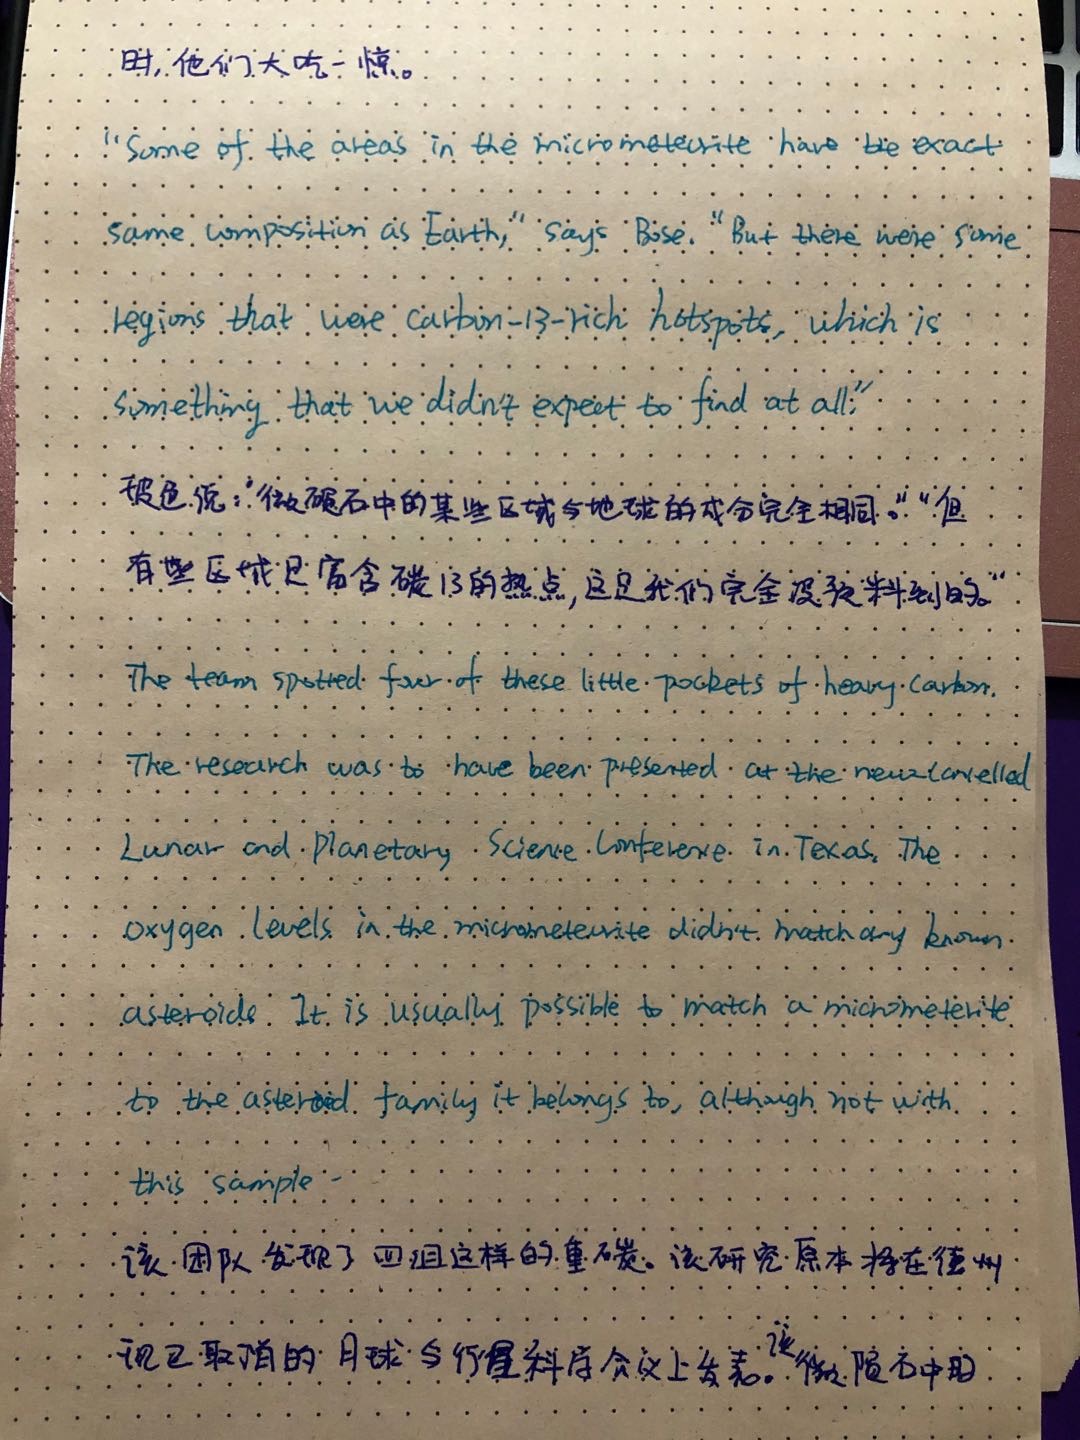 时,他们大吃一惊。
"Some of the areas in the micrometeorite have the exact
same composition as Earth," says Bose. "But there were some
regions that were carbon-13-rich hotspots, which is
something that we didn't expect to find at all."
玻色说:"微碾石中的某些区域与地球的成分完全相同。" "但
有些区域是富含碳13的热点,这是我们完全没预料到的。"
The team spotted four of these little pockets of heavy carbon.
The research was to have been presented at the now-cancelled
Lunar and Planetary Science Conference in Texas. The
oxygen levels in the micrometeorite didn't match any known
asteroids. It is usually possible to match a micrometerite
to the asteroid family it belongs to, although not with
this sample-
该团队发现了四组这样的重碳。该研究原本将在德州
现已取消的月球与行星科学会议上发表。该微陨石中的